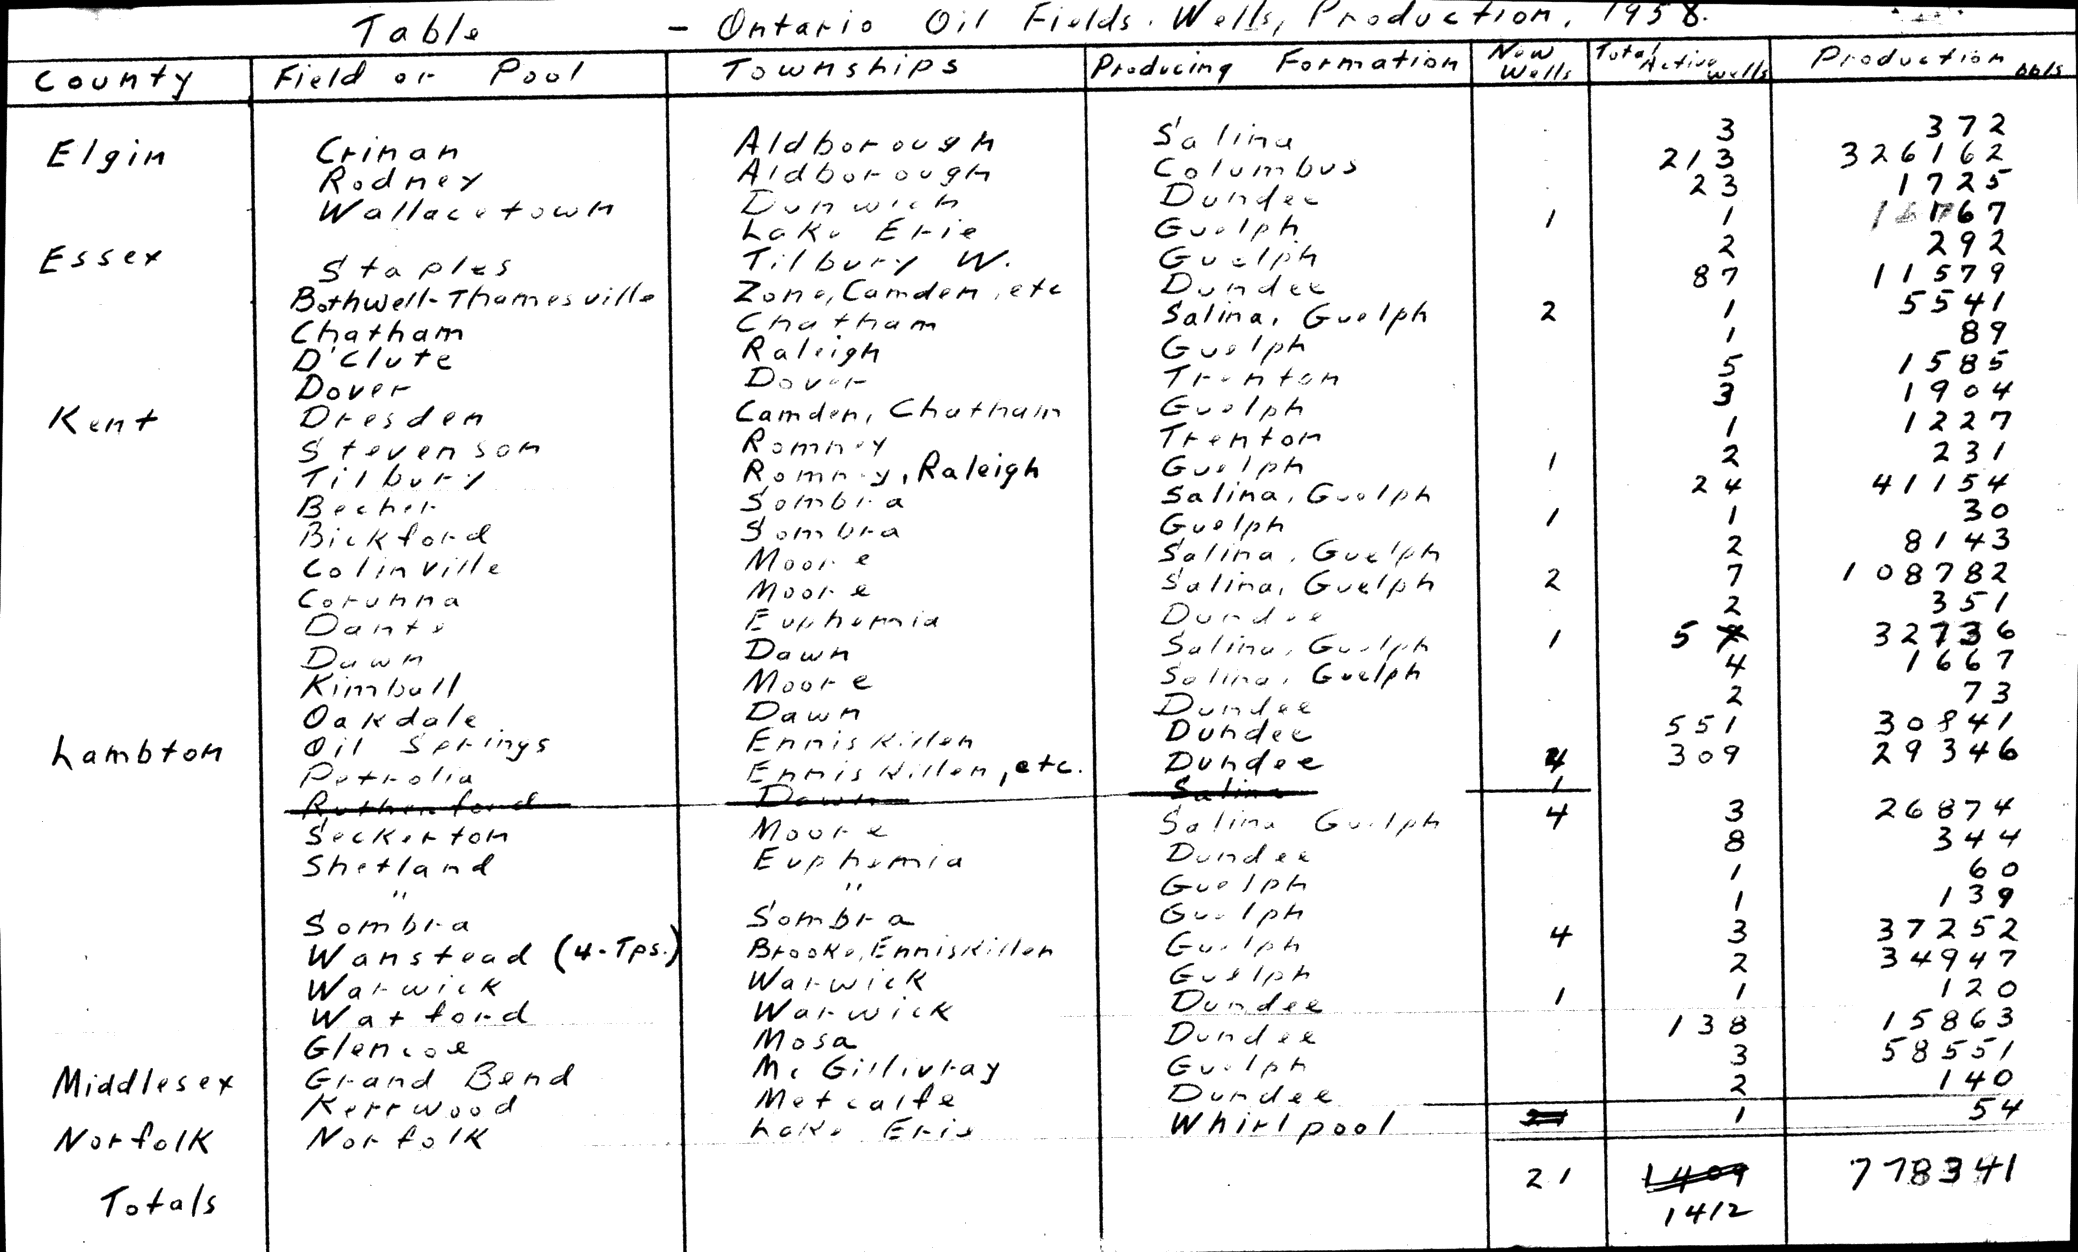 Table - Ontario Oil Fields. Wells, Production, 1958.
County Field or Pool Townships Producing Formation New Wells Total Active wells Production bbls
Elgin Crinan Aldborough Salina 3 372
Rodney Aldborough Columbus 213 326162
Wallacetown Dunwich Dundee 23 1725
Lake Erie Guelph 1 1 67
Essex Staples Tilbury W. Guelph 2 292
Bothwell-Thamesville Zone, Camden, etc Dundee 87 11579
Chatham Chatham Salina, Guelph 2 1 5541
D'Clute Raleigh Guelph 1 89
Dover Dover Trenton 5 1585
Kent Dresden Camden, Chatham Guelph 3 1904
Stevenson Romney Trenton 1 1227
Tilbury Romney, Raleigh Guelph 1 2 231
Becher Sombra Salina, Guelph 24 41154
Bickford Sombra Guelph 1 1 30
Colinville Moore Salina, Guelph 2 8143
Corunna Moore Salina, Guelph 2 7 108782
Dante Euphemia Dundee 2 351
Dawn Dawn Salina, Guelph 1 5 32736
Kimball Moore Salina, Guelph 4 1667
Oakdale Dawn Dundee 2 73
Lambton Oil Springs Enniskillen Dundee 551 30841
Petrolia Enniskillen, etc. Dundee 4 309 29346
Rutherford Dawn Salina 1
Seckerton Moore Salina Guelph 4 3 26874
Shetland Euphemia Dundee 8 344
" " Guelph 1 60
Sombra Sombra Guelph 1 139
Wanstead (4-Tps.) Brooke, Enniskillen Guelph 4 3 37252
Warwick Warwick Guelph 2 34947
Watford Warwick Dundee 1 1 120
Glencoe Mosa Dundee 138 15863
Middlesex Grand Bend Mc Gillivray Guelph 3 58551
Kerrwood Metcalfe Dundee 2 140
Norfolk Norfolk Lake Erie Whirlpool 1 54
Totals 21 1409 778341
1412